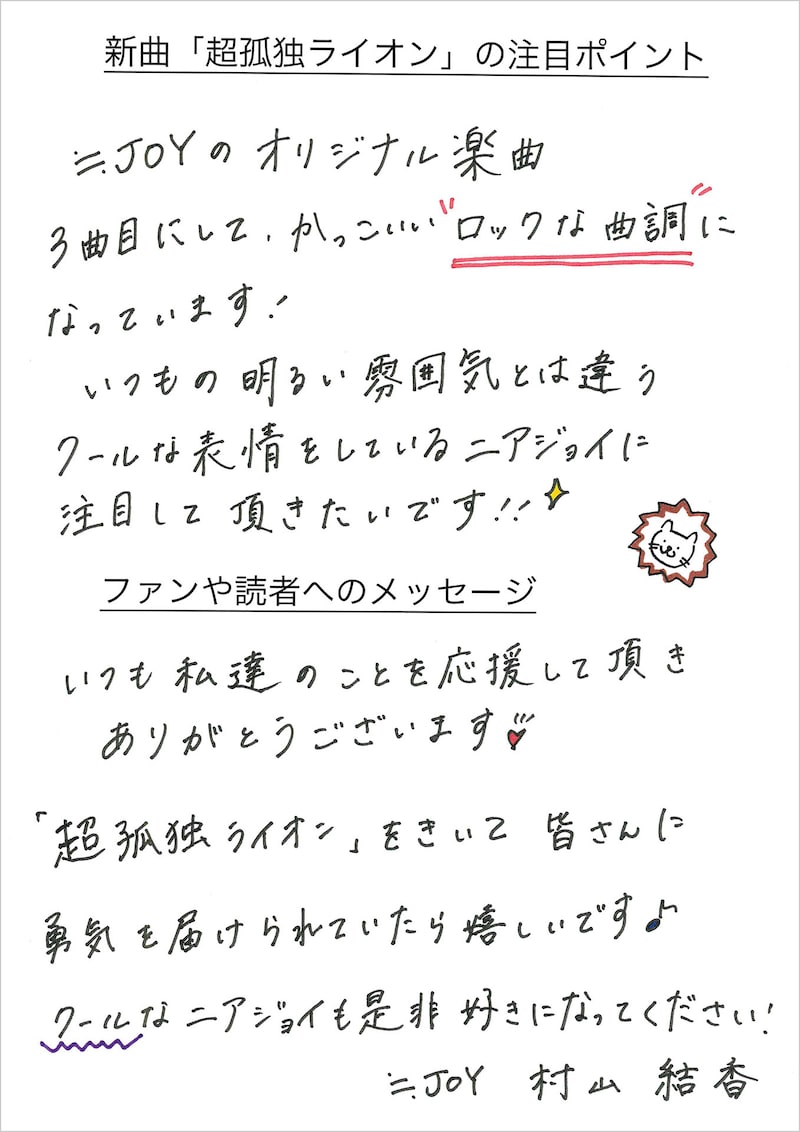 新曲「超孤独ライオン」の注目ポイント
≒JOYの オリジナル楽曲
3曲目にして、かっこいい"ロックな曲調"に
なっています!
いつもの明るい雰囲気とは違う
クールな表情をしているニアジョイに
注目して頂きたいです!!
ファンや読者へのメッセージ
いつも私達のことを応援して頂き
ありがとうございます
「超孤独ライオン」をきいて 皆さんに
勇気を届けられていたら嬉しいです♪
クールなニアジョイも是非好きになってください!
≒JOY 村山 結香